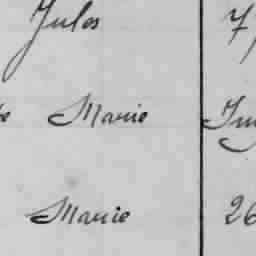 Jules 7
Marie
Marie 26